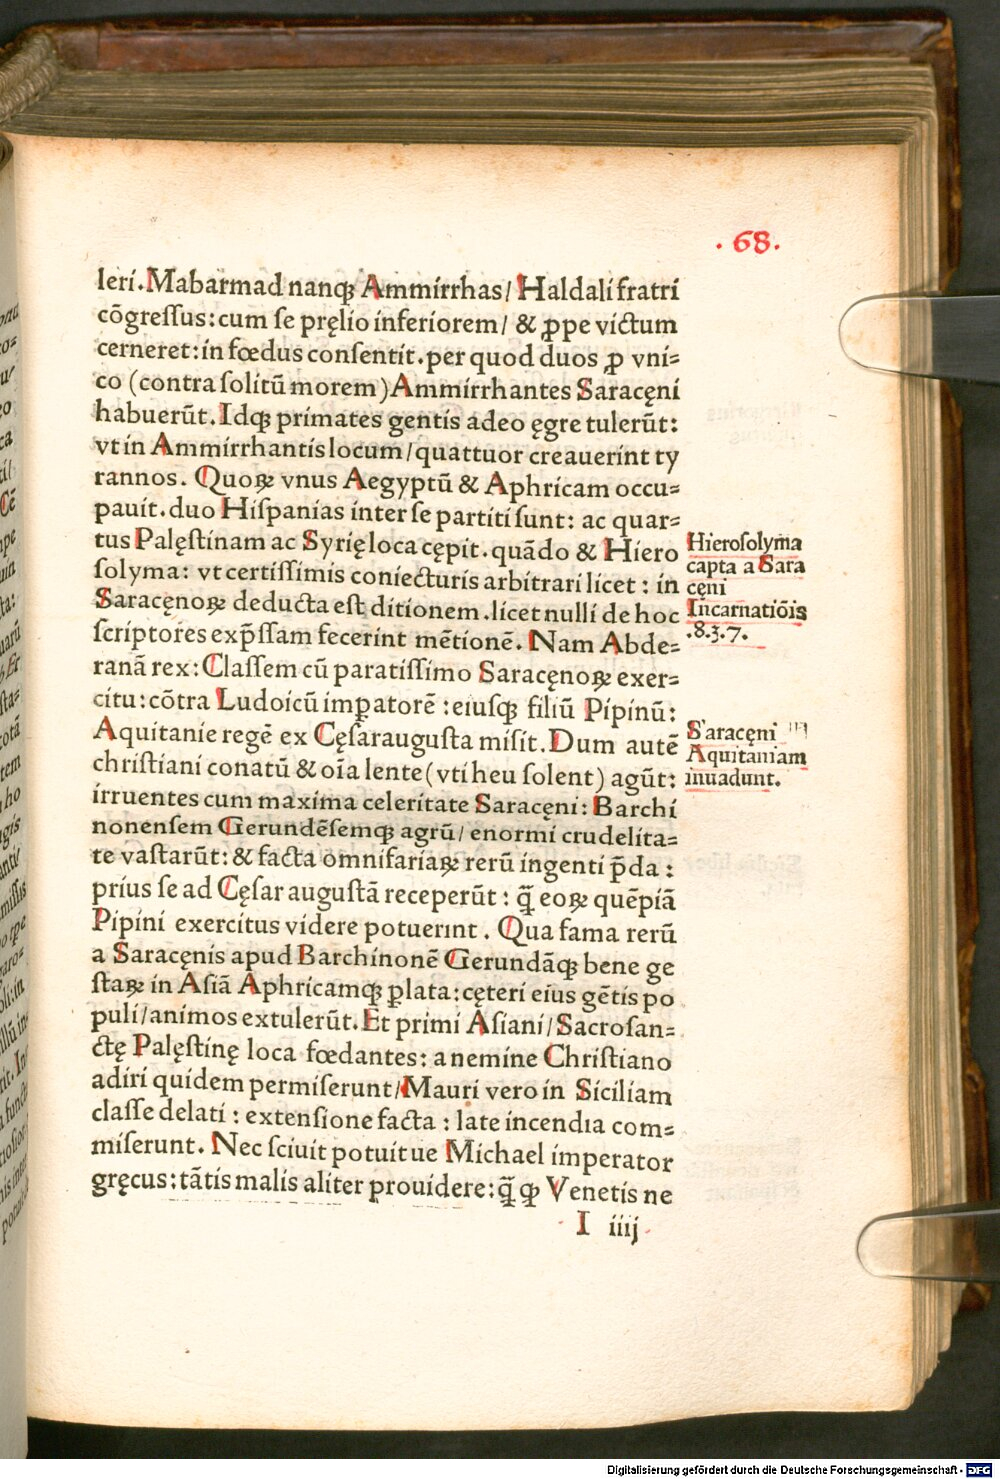 .68.
leri.Mabarmad nanqꝫ Ammirrhas/ Haldali fratri
cōgreſſus:cum ſe pręlio inferiorem/ & ꝓpe victum
cerneret:in fœdus conſentit.per quod duos ꝓ vni⸗
co (contra ſolitū morem)Ammirrhantes Saracęni
habuerūt.Idqꝫ primates gentis adeo ęgre tulerūt:
vt in Ammirrhantis locum/quattuor creauerint ty
rannos. Quoꝝ vnus Aegyptū & Aphricam occu⸗
pauit.duo Hiſpanias inter ſe partiti ſunt: ac quar⸗
tus Palęſtinam ac Syrię loca cępit.quādo & Hiero
ſolyma: vt certiſſimis coniecturis arbitrari licet : in
Saracęnoꝝ deducta eſt ditionem.licet nulli de hoc
ſcriptores exp̄ſſam fecerint mētionē. Nam Abde⸗
ranā rex:Claſſem cū paratiſſimo Saracęnoꝝ exer⸗
citu:cōtra Ludoicū imꝑatorē :eiuſqꝫ filiū Pipinū:
Aquitanie regē ex Cęſarauguſta miſit.Dum autē
chriſtiani conatū & oīa lente(vti heu ſolent) agūt:
irruentes cum maxima celeritate Saracęni: Barchi
nonenſem Gerundēſemqꝫ agrū/ enormi crudelita⸗
te vaſtarūt:& facta omnifariaꝝ rerū ingenti p̄da :
prius ſe ad Cęſar auguſtā receperūt : q̄ eoꝝ quēpiā
Pipini exercitus videre potuerint . Qua fama rerū
a Saracęnis apud Barchinonē Gerundāqꝫ bene ge
ſtaꝝ in Aſiā Aphricamqꝫ ꝑlata:cęteri eius gētis po
puli/animos extulerūt.Et primi Aſiani/Sacroſan⸗
ctę Palęſtinę loca fœdantes: a nemine Chriſtiano
adiri quidem permiſerunt/Mauri vero in Siciliam
claſſe delati : extenſione facta : late incendia com⸗
miſerunt. Nec ſciuit potuit ue Michael imperator
gręcus:tātis malis aliter prouidere:q̄ ꝙ Venetis ne
I iiij
Hieroſolyma
capta a Sara
cęni
Incarnatiōis
.8.3.7.
Saracęni
Aquitaniam
inuadunt.
Digitalisierung gefördert durch die Deutsche Forschungsgemeinschaft - DFG